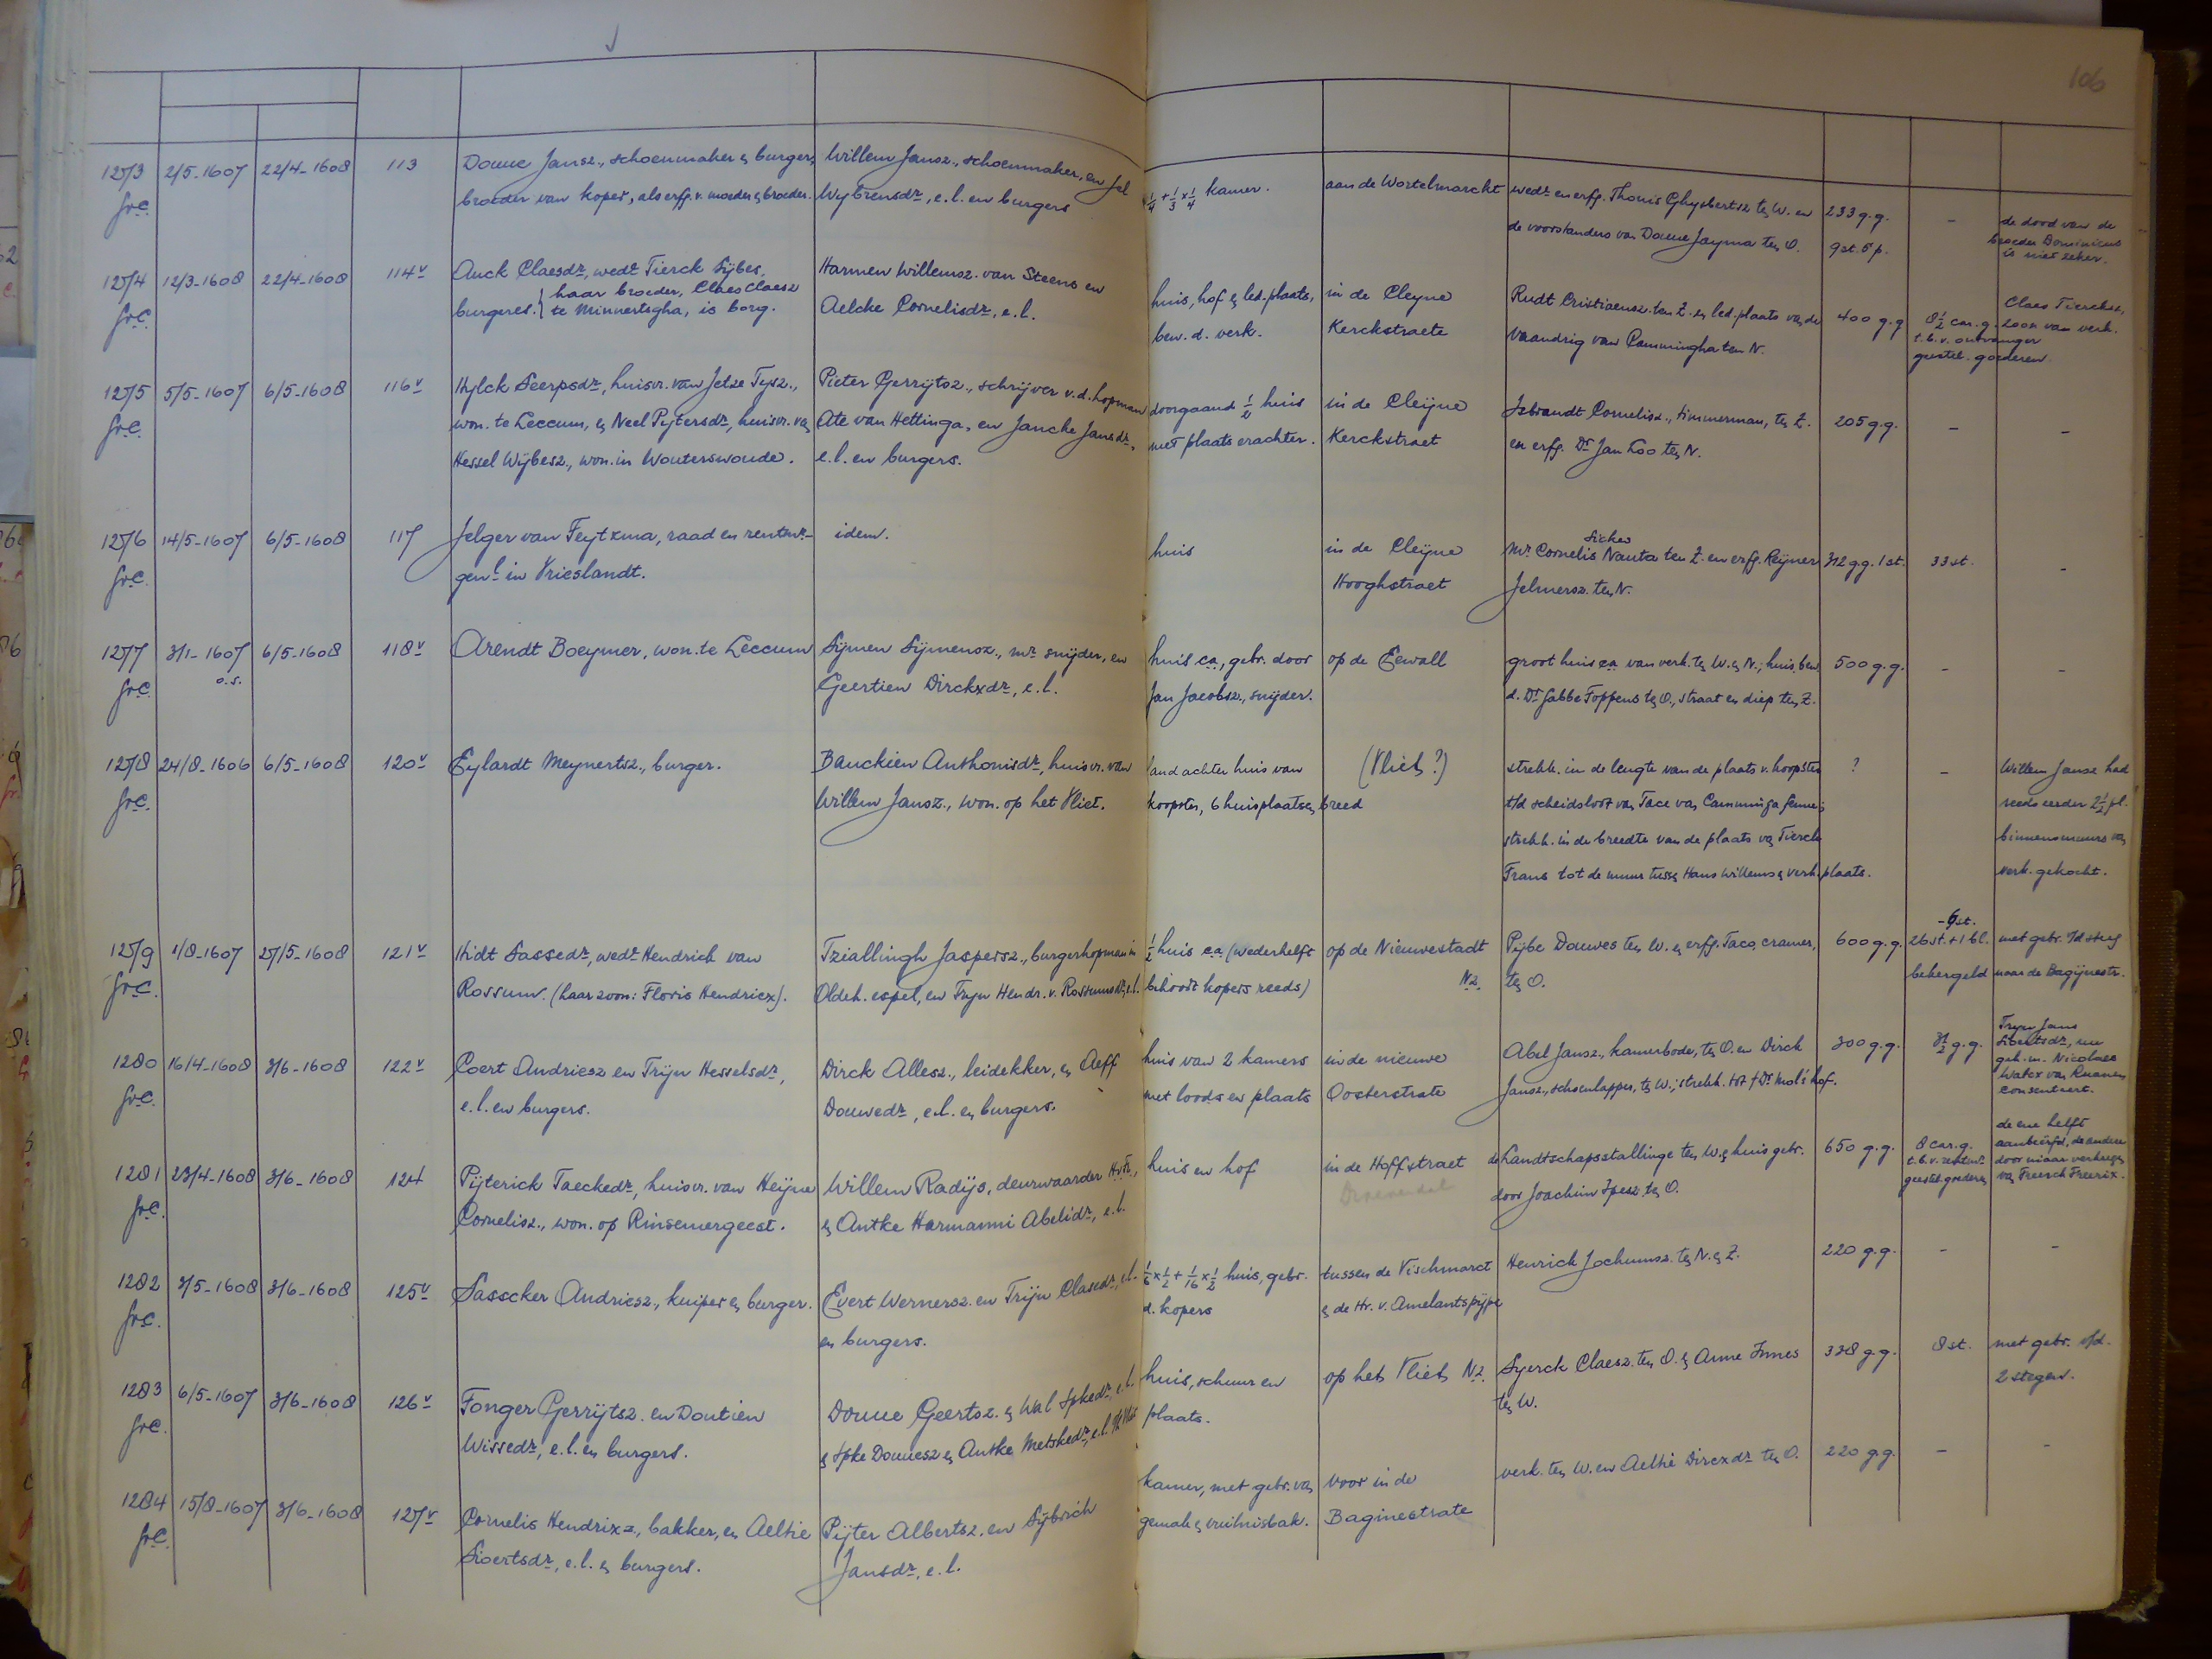 106
1273 2/5-1607 22/4-1608 113 Douue Jansz., schoenmaker en burger, Willem Jansz., schoenmaker, en Jel ¼ + ⅓ x ¼ kamer. aan de Wortelmarckt wedr en erfg. Thonis Ghysbertsz ten W. en 233 g.g. - de dood van de
frc. broeder van koper, als erfg. v. moeder en broeder. Wybrensdr, e.l. en burgers de voorstanders van Douue Jayma ten O. 9 st. 5 p. broeder Dominicus
is niet zeker.
1274 12/3-1608 22/4-1608 114v Auck Claesdr, wedr Tierck Sijbes, Harmen Willemsz. van Steens en huis, hof en led. plaats, in de Cleyne Rudt Cristiaensz. ten Z. en led. plaats van de 400 g.g. 8½ car.g. Claes Tiercksz,
frc. burgeres. } haar broeder, Claes Claesz Aelcke Cornelisdr, e.l. bew. d. verk. Kerckstraete vaandrig van Camminghaten N. t.b.v. ontvanger zoon van verk.
te Minnertsgha, is borg. geestel. goederen.
1275 5/5-1607 6/5-1608 116v Hylck Seerpsdr, huisvr. van Jelse Tysz., Pieter Gerrytsz., schrijver v.d. hopman doorgaand ½ huis in de Cleijne Isbrandt Cornelisz., timmerman, ten Z. 205 g.g. - -
frc. won. te Leccum, en Neel Pytersdr, huisvr. van Ate van Hettinga, en Jancke Jansdr, met plaats erachter. Kerckstraet en erfg. Dr Jan Loo ten N.
Hessel Wijbesz., won. in Wouterswoude. e.l. en burgers.
1276 14/5-1607 6/5-1608 117 Jelger van Feytzma, raad en rentmr- idem. huis in de Cleijne Mr Cornelis Sickes Nauta ten Z. en erfg. Reijner 312 g.g. 1 st. 33 st. -
frc. genl in Vrieslandt. Hooghstraet Jelmersz. ten N.
1277 3/1-1607 6/5-1608 118v Arendt Boeymer, won. te Leccum Sijmen Sijmensz., mr snijder, en huis c.a., gebr. door op de Eewall groot huis c.a. van verk. ten W. en N.; huis, bew. 500 g.g. - -
frc. o.s. Geertien Dirckxdr, e.l. Jan Jacobsz., snijder. d. Dr Sabbe Foppens ten O., straat en diep ten Z.
1278 24/8-1606 6/5-1608 120v Eylardt Meynertsz., burger. Bauckien Anthonisdr, huisvr. van land achter huis van (Vliet?) strekk. in de lengte van de plaats v. koopster ? - Willem Jansz had
frc. Willem Jansz., won. op het Vliet. koopster, 6 huisplaatsen breed t/d scheidsloot van Tace van Camminga fenne; reeds eerder 2½ pl.
strekk. in de breedte van de plaats van Tierck binnensmuurs van
Frans tot de muur tussen Hans Willems en verk. plaats. verk. gekocht.
1279 1/8-1607 27/5-1608 121v Hidt Sassedr, wedr Hendrick van Tziallingh Jaspersz., burgerhopman in ½ huis c.a. (wederhelft op de Nieuwestadt Pijbe Douwes ten W. en erfg. Taco, cramer, 600 g.g. -6 st. 26 st. + 1 bl. met gebr. v/d steeg
frc. Rossum. (haar zoon: Floris Hendricx). Oldeh. espel, en Tryn Hendr. v. Rossums dr, e.l. behoort kopers reeds) Nz. ten O. bekergeld naar de Bagijnestr.
1280 16/4-1608 3/6-1608 122v Coert Andriesz en Trijn Hesselsdr, Dirck Allesz., leidekker, en Aeff huis van 2 kamers in de nieuwe Abel Jansz., kamerbode, ten O. en Dirck 300 g.g. 3½ g.g. Tryn Jans
frc. e.l. en burgers. Douwedr, e.l. en burgers. met loods en plaats Oosterstrate Jansz., schoenlapper, ten W.; strekk. tot † Dr Mols' hof. Sioertsdr, nu
geh. m. Nicolaes
consenteert.
1281 23/4-1608 3/6-1608 124 Pijterick Taeckedr, huisvr. van Heijne Willem Radijs, deurwaarder Hv.Fr., huis en hof in de Hoffstraet de Landtschapsstallinge ten W. en huis gebr. 650 g.g. 8 car.g. de ene helft
frc. Cornelisz., won. op Rinsumergeest. en Antke Harmanni Abelidr, e.l. door Joachim Ipesz. ten O. t.b.v. rentmr aanbeërfd, de andere
geestel. goederen door niaar verkregen
van Freerck Freerix.
1282 3/5-1608 3/6-1608 125v Sasscker Andriesz., kuiper en burger. Evert Wernersz. en Trijn Claesdr, e.l. ⅙ x ½ + 1/16 x ½ huis, gebr. tussen de Vischmarct Henrick Jochumsz. ten N. en Z. 220 g.g. - -
frc. en burgers. d. kopers en de Hr. v. Amelantspijpe
1283 6/5-1607 3/6-1608 126v Fonger Gerrijtsz. en Doutien Douue Geertsz. en Wal Ipkedr, e.l. huis, schuur en op het Vliet Nz. Syerck Claesz. ten O. en Anne Innes 328 g.g. 8 st. met gebr. v/d.
frc. Wissedr, e.l. en burgers. en Ipke Douuesz en Antke Metskedr, e.l. plaats. ten W. 2 stegen.
1284 15/8-1607 3/6-1608 127v Cornelis Hendrixz, bakker, en Aeltie Pijter Albertsz. en Sijbrich kamer, met gebr. van voor in de verk. ten W. en Aeltie Dircxdr ten O. 220 g.g. - -
frc. Sioertsdr, e.l. en burgers. Jansdr, e.l. gemak en vuilnisbak. Baginestrate